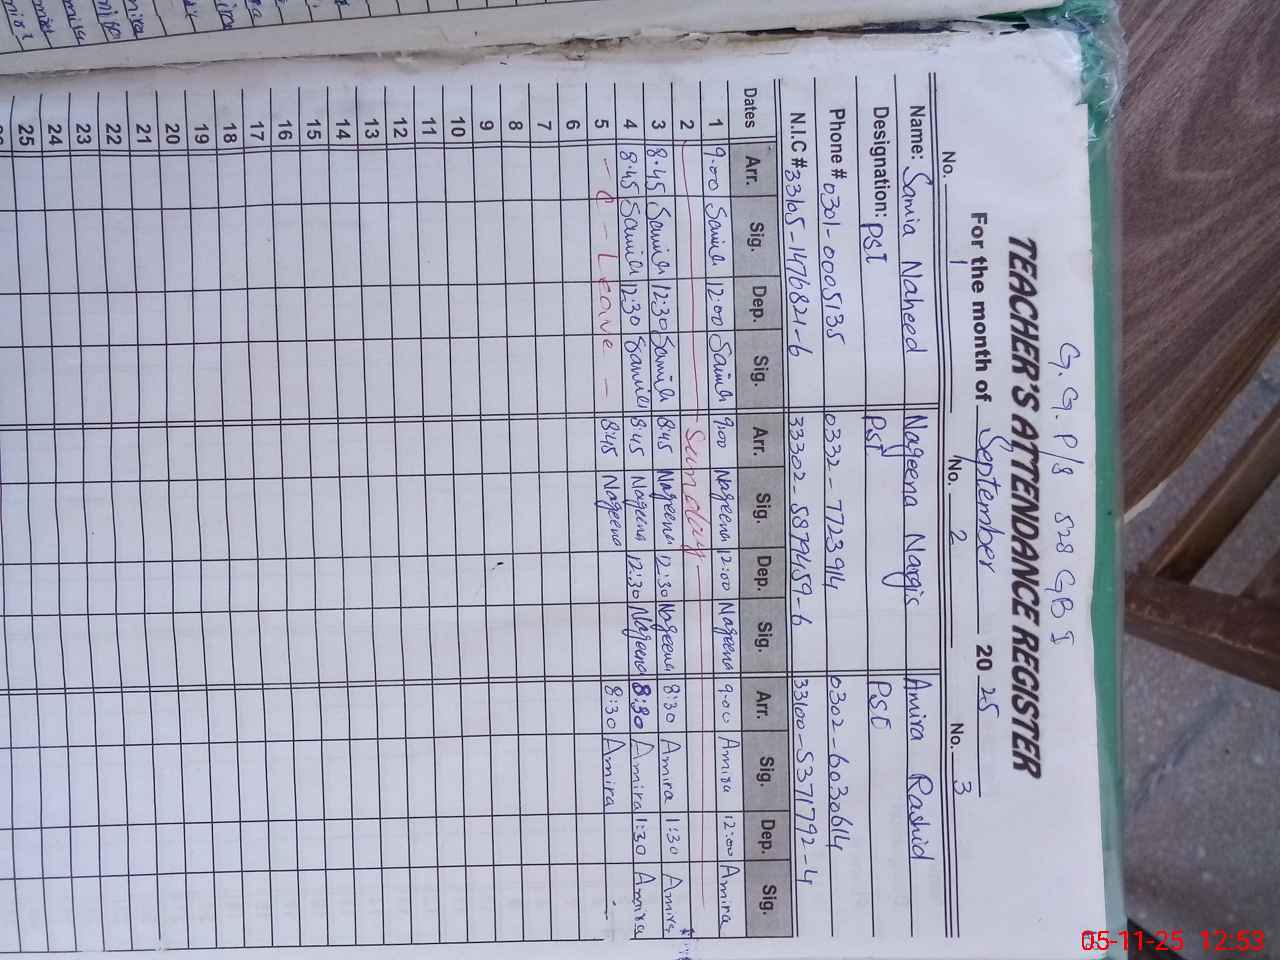 G.G. P/S 528 GB I
TEACHER'S ATTENDANCE REGISTER
For the month of September 2025
No. 1 No. 2 No. 3
Name: Samia Naheed Nageena Nargis Amira Rashid
Designation: PST PST PST
Phone # 0301-0005135 0332-7723914 0302-6030614
N.I.C # 33105-1476821-6 33302-5879459-6 33100-5371792-4
Dates Arr. Sig. Dep. Sig. Arr. Sig. Dep. Sig. Arr. Sig. Dep. Sig.
1 9.00 Samia 12:00 Samia 9:00 Nageena 12:00 Nageena 9.00 Amira 12:00 Amira
2 Sunday
3 8.45 Samia 12:30 Samia 8:45 Nageena 12:30 Nageena 8:30 Amira 1:30 Amira
4 8.45 Samia 12:30 Samia 8:45 Nageena 12:30 Nageena 8:30 Amira 1:30 Amira
5 - C - Leave - 8:45 Nageena 8:30 Amira
6
7
8
9
10
11
12
13
14
15
16
17
18
19
20
21
22
23
24
25
05-11-25 12:53